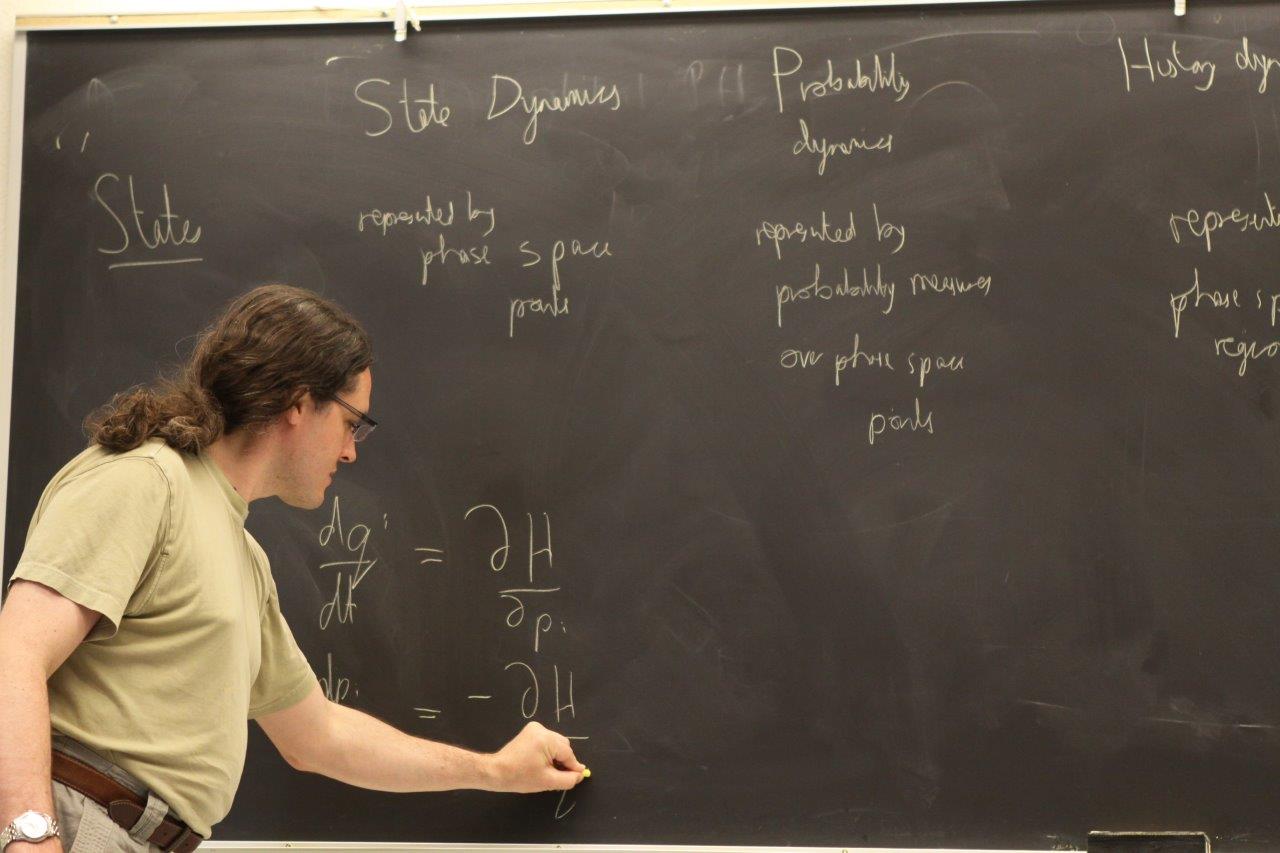 State Dynamics
Probability
dynamics
History dyn
States
represented by
phase space
points
represented by
probability measures
over phase space
points
represent
phase sp
regio
dqⁱ/dt = ∂H/∂pᵢ
dpᵢ = - ∂H